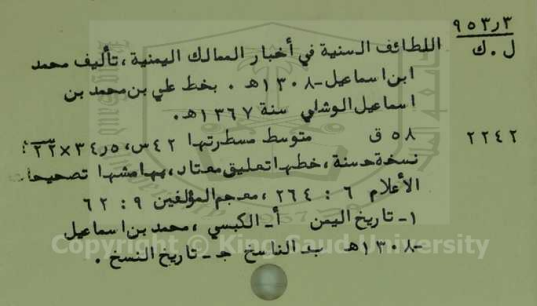 ٩٥٣٫٣
ل . ك
اللطائف السنية في أخبار الممالك اليمنية ، تأليف محمد
ابن اسماعيل - ١٣٠٨ هـ . بخط علي بن محمد بن
اسماعيل الوشلي سنة ١٣٦٧ هـ .
٢٢٤٢
٥٨ ق متوسط مسطرتها ٤٢ س ، ٣٤٫٥ × ٢٢ سم
نسخة حسنة ، خطها تعليق معتاد ، بهامشها تصحيحات
الأعلام ٦ : ٢٦٤ ، معجم المؤلفين ٩ : ٦٢
١ - تاريخ اليمن أ - الكبسي ، محمد بن اسماعيل
- ١٣٠٨ هـ ب - الناسخ ج - تاريخ النسخ .
Copyright © King Saud University